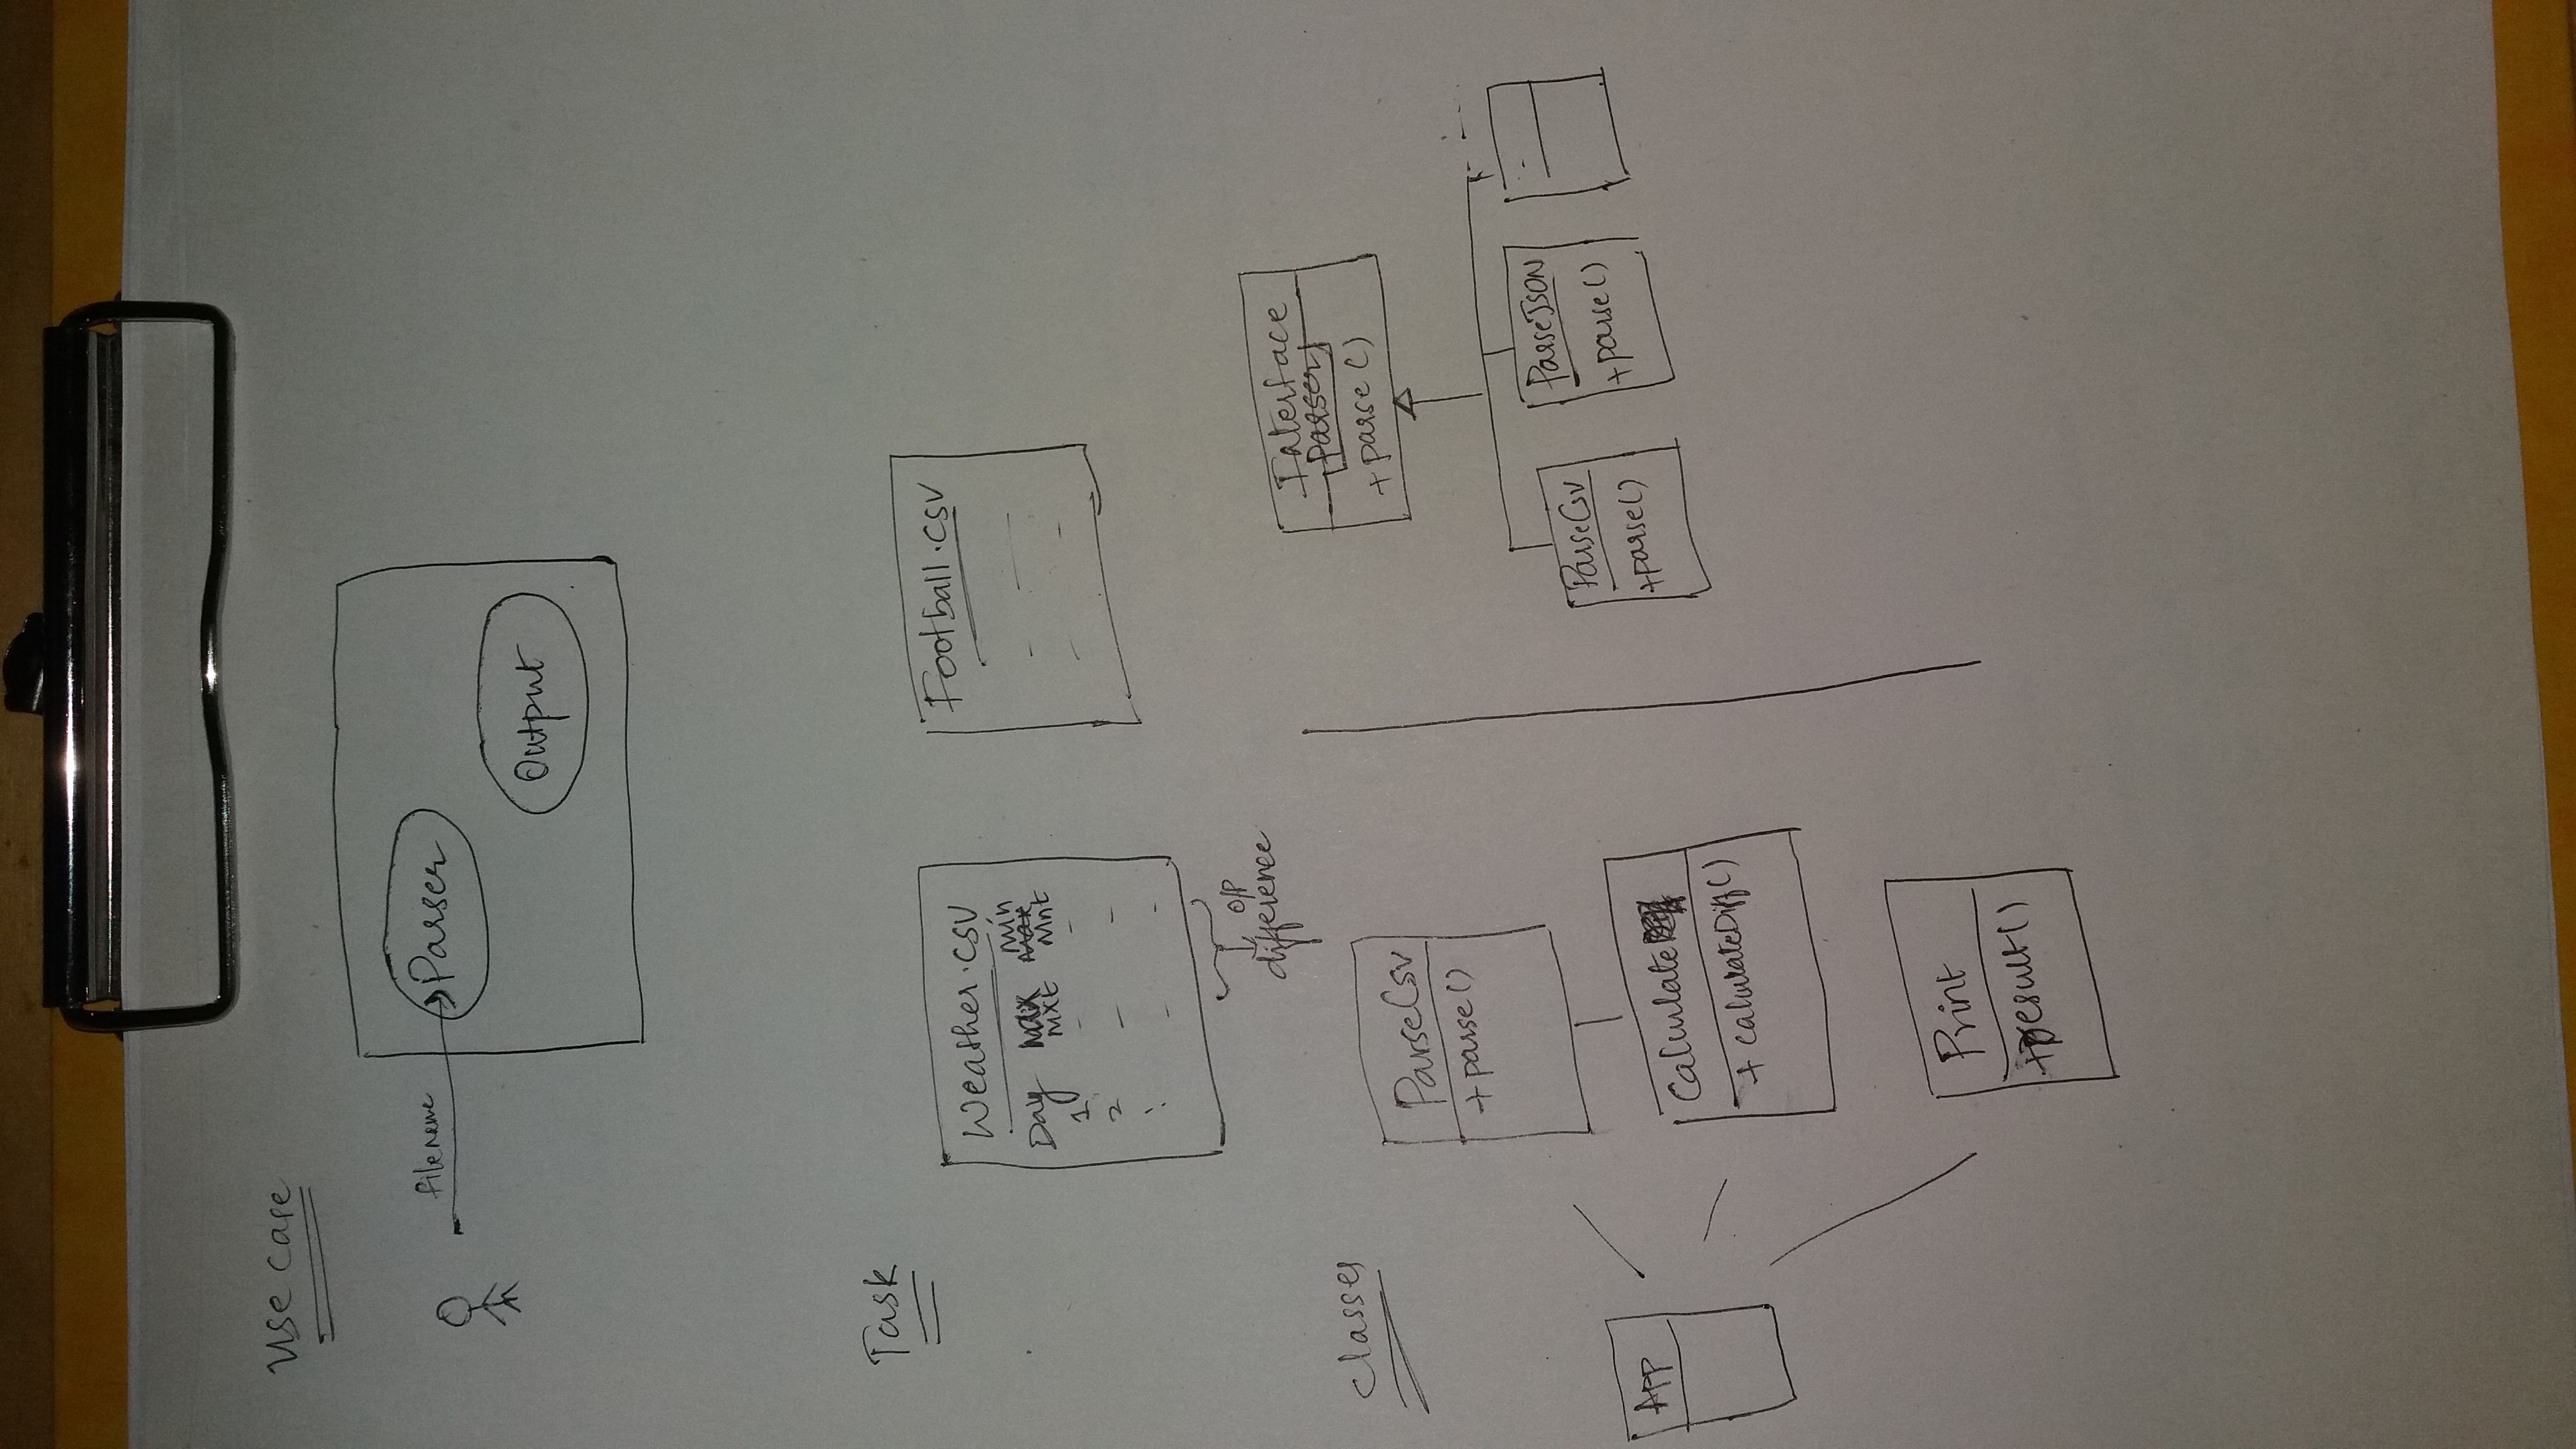 Use Case
filename
Parser
Output
Task
Weather.csv
min
Day Max Max
Mxt Mnt
1
2
Football.csv
O/P
difference
Classes
ParseCsv
+ parse()
App
Calculate
+ calculateDiff()
Print
+ result()
Interface
Parser
+ parse()
ParseCsv
+ parse()
ParseJSON
+ parse()